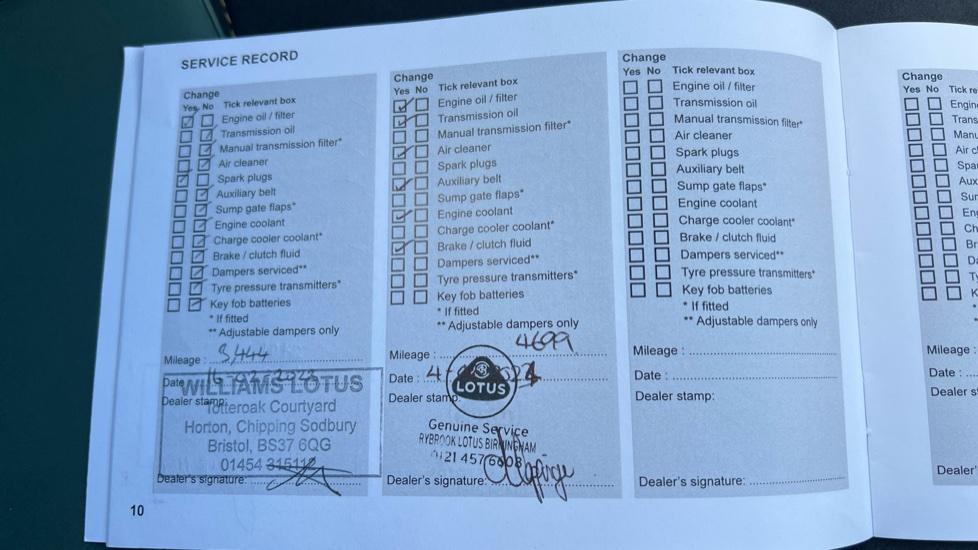 SERVICE RECORD
Change
Yes No Tick relevant box
Engine oil / filter
Transmission oil
Manual transmission filter*
Air cleaner
Spark plugs
Auxiliary belt
Sump gate flaps*
Engine coolant
Charge cooler coolant*
Brake / clutch fluid
Dampers serviced**
Tyre pressure transmitters*
Key fob batteries
* If fitted
** Adjustable dampers only
Mileage : 3,444
Date
Dealer stamp:
WILLIAMS LOTUS
Totteroak Courtyard
Horton, Chipping Sodbury
Bristol, BS37 6QG
01454 315112
Dealer's signature:
10
Change
Yes No Tick relevant box
Engine oil / filter
Transmission oil
Manual transmission filter*
Air cleaner
Spark plugs
Auxiliary belt
Sump gate flaps*
Engine coolant
Charge cooler coolant*
Brake / clutch fluid
Dampers serviced**
Tyre pressure transmitters*
Key fob batteries
* If fitted
** Adjustable dampers only
Mileage : 4699
Date : 4
LOTUS
Dealer stamp:
Genuine Service
RYBROOK LOTUS BIRMINGHAM
0121 457 6608
Dealer's signature:
Change
Yes No Tick relevant box
Engine oil / filter
Transmission oil
Manual transmission filter*
Air cleaner
Spark plugs
Auxiliary belt
Sump gate flaps*
Engine coolant
Charge cooler coolant*
Brake / clutch fluid
Dampers serviced**
Tyre pressure transmitters*
Key fob batteries
* If fitted
** Adjustable dampers only
Mileage :
Date :
Dealer stamp:
Dealer's signature:
Change
Yes No Tick re
Engin
Trans
Manu
Air cl
Spa
Aux
Sur
En
Ch
Br
Da
Ty
K
*
**
Mileage :
Date :
Dealer s
Dealer'